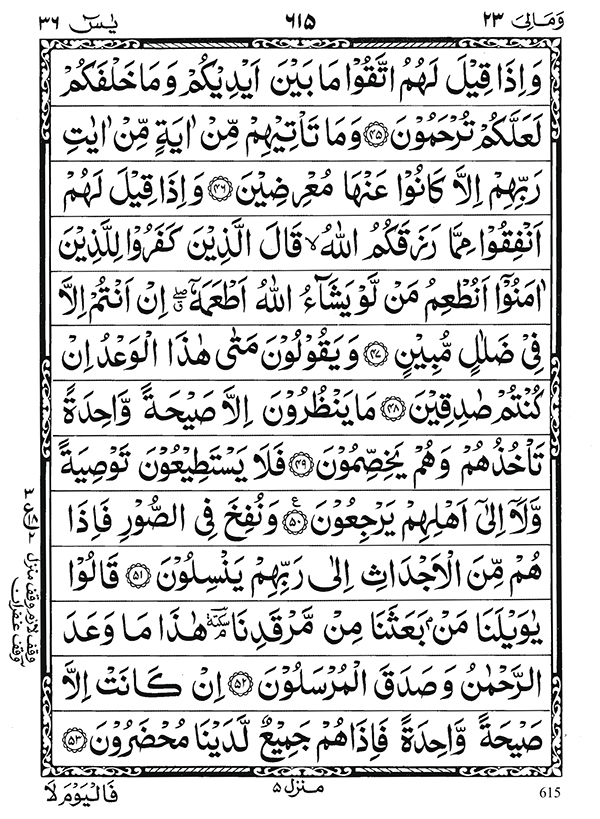 وَمَالِیَ ۲۳ ۶۱۵ یٰسٓ ۳۶
وَاِذَا قِيْلَ لَهُمُ اتَّقُوْا مَا بَيْنَ اَيْدِيْكُمْ وَمَا خَلْفَكُمْ
لَعَلَّكُمْ تُرْحَمُوْنَ ﴿۴۵﴾ وَمَا تَاْتِيْهِمْ مِّنْ اٰيَةٍ مِّنْ اٰيٰتِ
رَبِّهِمْ اِلَّا كَانُوْا عَنْهَا مُعْرِضِيْنَ ﴿۴۶﴾ وَاِذَا قِيْلَ لَهُمْ
اَنْفِقُوْا مِمَّا رَزَقَكُمُ اللّٰهُ ۙ قَالَ الَّذِيْنَ كَفَرُوْا لِلَّذِيْنَ
اٰمَنُوْۤا اَنُطْعِمُ مَنْ لَّوْ يَشَآءُ اللّٰهُ اَطْعَمَهٗۤ ۖ ق اِنْ اَنْتُمْ اِلَّا
فِيْ ضَلٰلٍ مُّبِيْنٍ ﴿۴۷﴾ وَيَقُوْلُوْنَ مَتٰى هٰذَا الْوَعْدُ اِنْ
كُنْتُمْ صٰدِقِيْنَ ﴿۴۸﴾ مَا يَنْظُرُوْنَ اِلَّا صَيْحَةً وَّاحِدَةً
تَاْخُذُهُمْ وَهُمْ يَخِصِّمُوْنَ ﴿۴۹﴾ فَلَا يَسْتَطِيْعُوْنَ تَوْصِيَةً
وَّلَاۤ اِلٰۤى اَهْلِهِمْ يَرْجِعُوْنَ ﴿۵۰﴾ ع وَنُفِخَ فِي الصُّوْرِ فَاِذَا
هُمْ مِّنَ الْاَجْدَاثِ اِلٰى رَبِّهِمْ يَنْسِلُوْنَ ﴿۵۱﴾ قَالُوْا
يٰوَيْلَنَا مَنْۢ بَعَثَنَا مِنْ مَّرْقَدِنَا ۘ سكتة هٰذَا مَا وَعَدَ
الرَّحْمٰنُ وَصَدَقَ الْمُرْسَلُوْنَ ﴿۵۲﴾ اِنْ كَانَتْ اِلَّا
صَيْحَةً وَّاحِدَةً فَاِذَا هُمْ جَمِيْعٌ لَّدَيْنَا مُحْضَرُوْنَ ﴿۵۳﴾
وقف لازم وقف منزل
وقف غفران
فَالْيَوْمَ لَا منزل ۵ 615